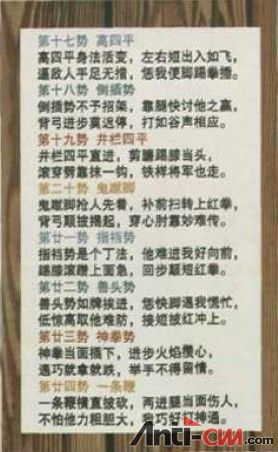 第十七势 高四平
高四平身法活变，左右短出入如飞，
逼敌人手足无措，恁我便脚踢拳捶。
第十八势 倒插势
倒插势不予招架，靠腿快讨他之赢，
背弓进步莫迟停，打如谷声相应。
第十九势 井栏四平
井栏四平直进，剪臁踢膝当头，
滚穿劈靠抹一钩，铁样将军也走。
第二十势 鬼蹴脚
鬼蹴脚抢人先着，补前扫转上红拳，
背弓颠披揭起，穿心肘靠妙难传。
第廿一势 指裆势
指裆势是个丁法，他难进我好向前，
踢膝滚躜上面急，回步颠短红拳。
第廿二势 兽头势
兽头势如牌挨进，恁快脚遇我慌忙，
低惊高取他难防，接短披红冲上。
第廿三势 神拳势
神拳当面插下，进步火焰攒心，
遇巧就拿就跌，举手不得留情。
第廿四势 一条鞭
一条鞭横直披砍，两进腿当面伤人，
不怕他力粗胆大，我巧好打神通。
Anti-CNN.com